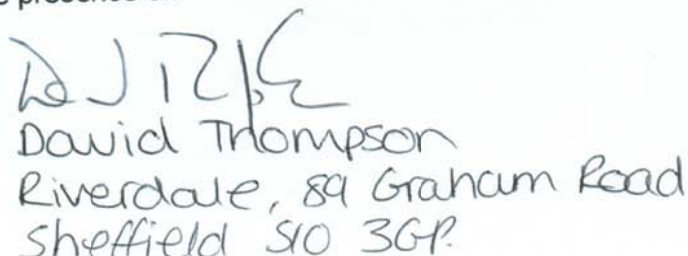 David Thompson
Riverdale, 89 Graham Road
Sheffield S10 3GP.